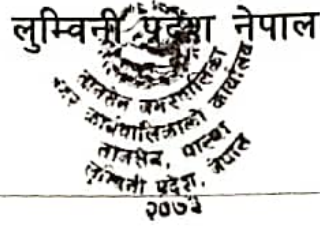 लुम्विनी प्रदेश नेपाल
तानसेन नगरपालिका
नगर कार्यपालिकाको कार्यालय
तानसेन, पाल्पा
लुम्विनी प्रदेश, नेपाल
२०७३